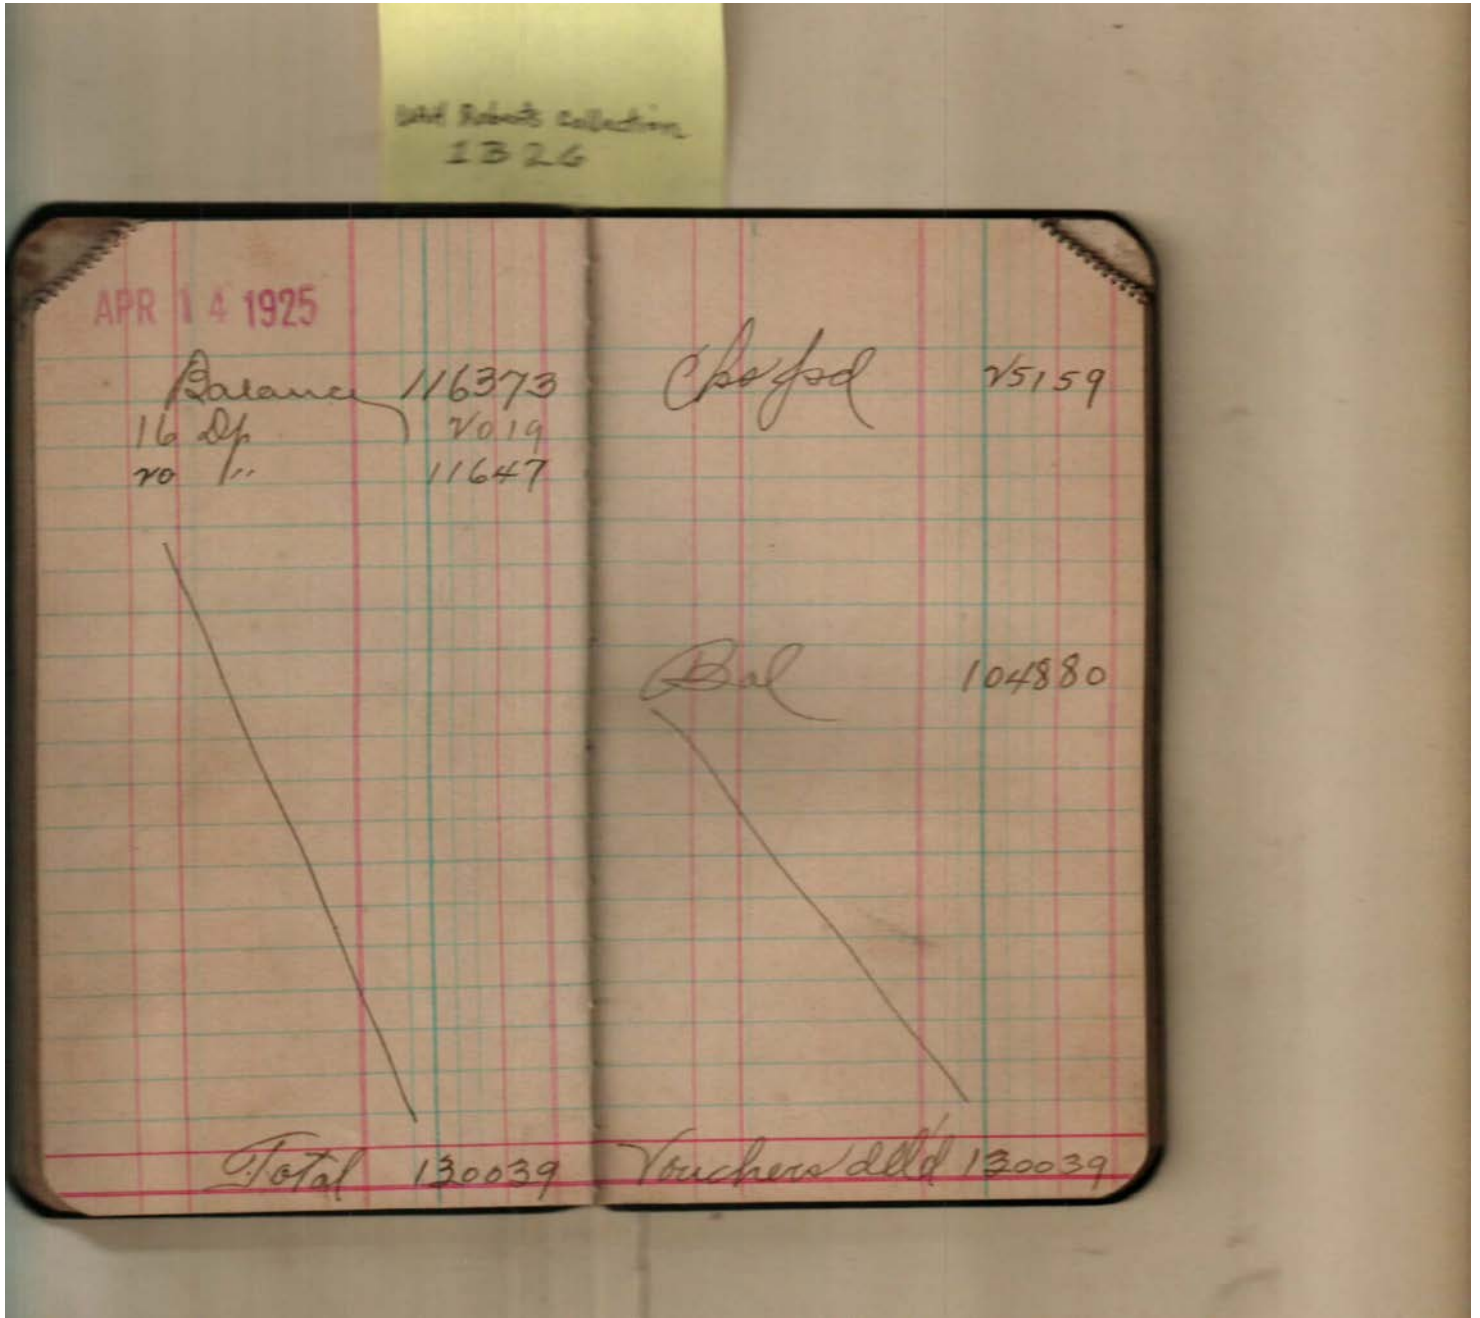 UAH Roberts Collection
1B26
APR 14 1925
Balance 116373
16 Dp 2019
20 " 11647
Total 130039
Cks pd 25159
Bal 104880
Vouchers delv'd 130039